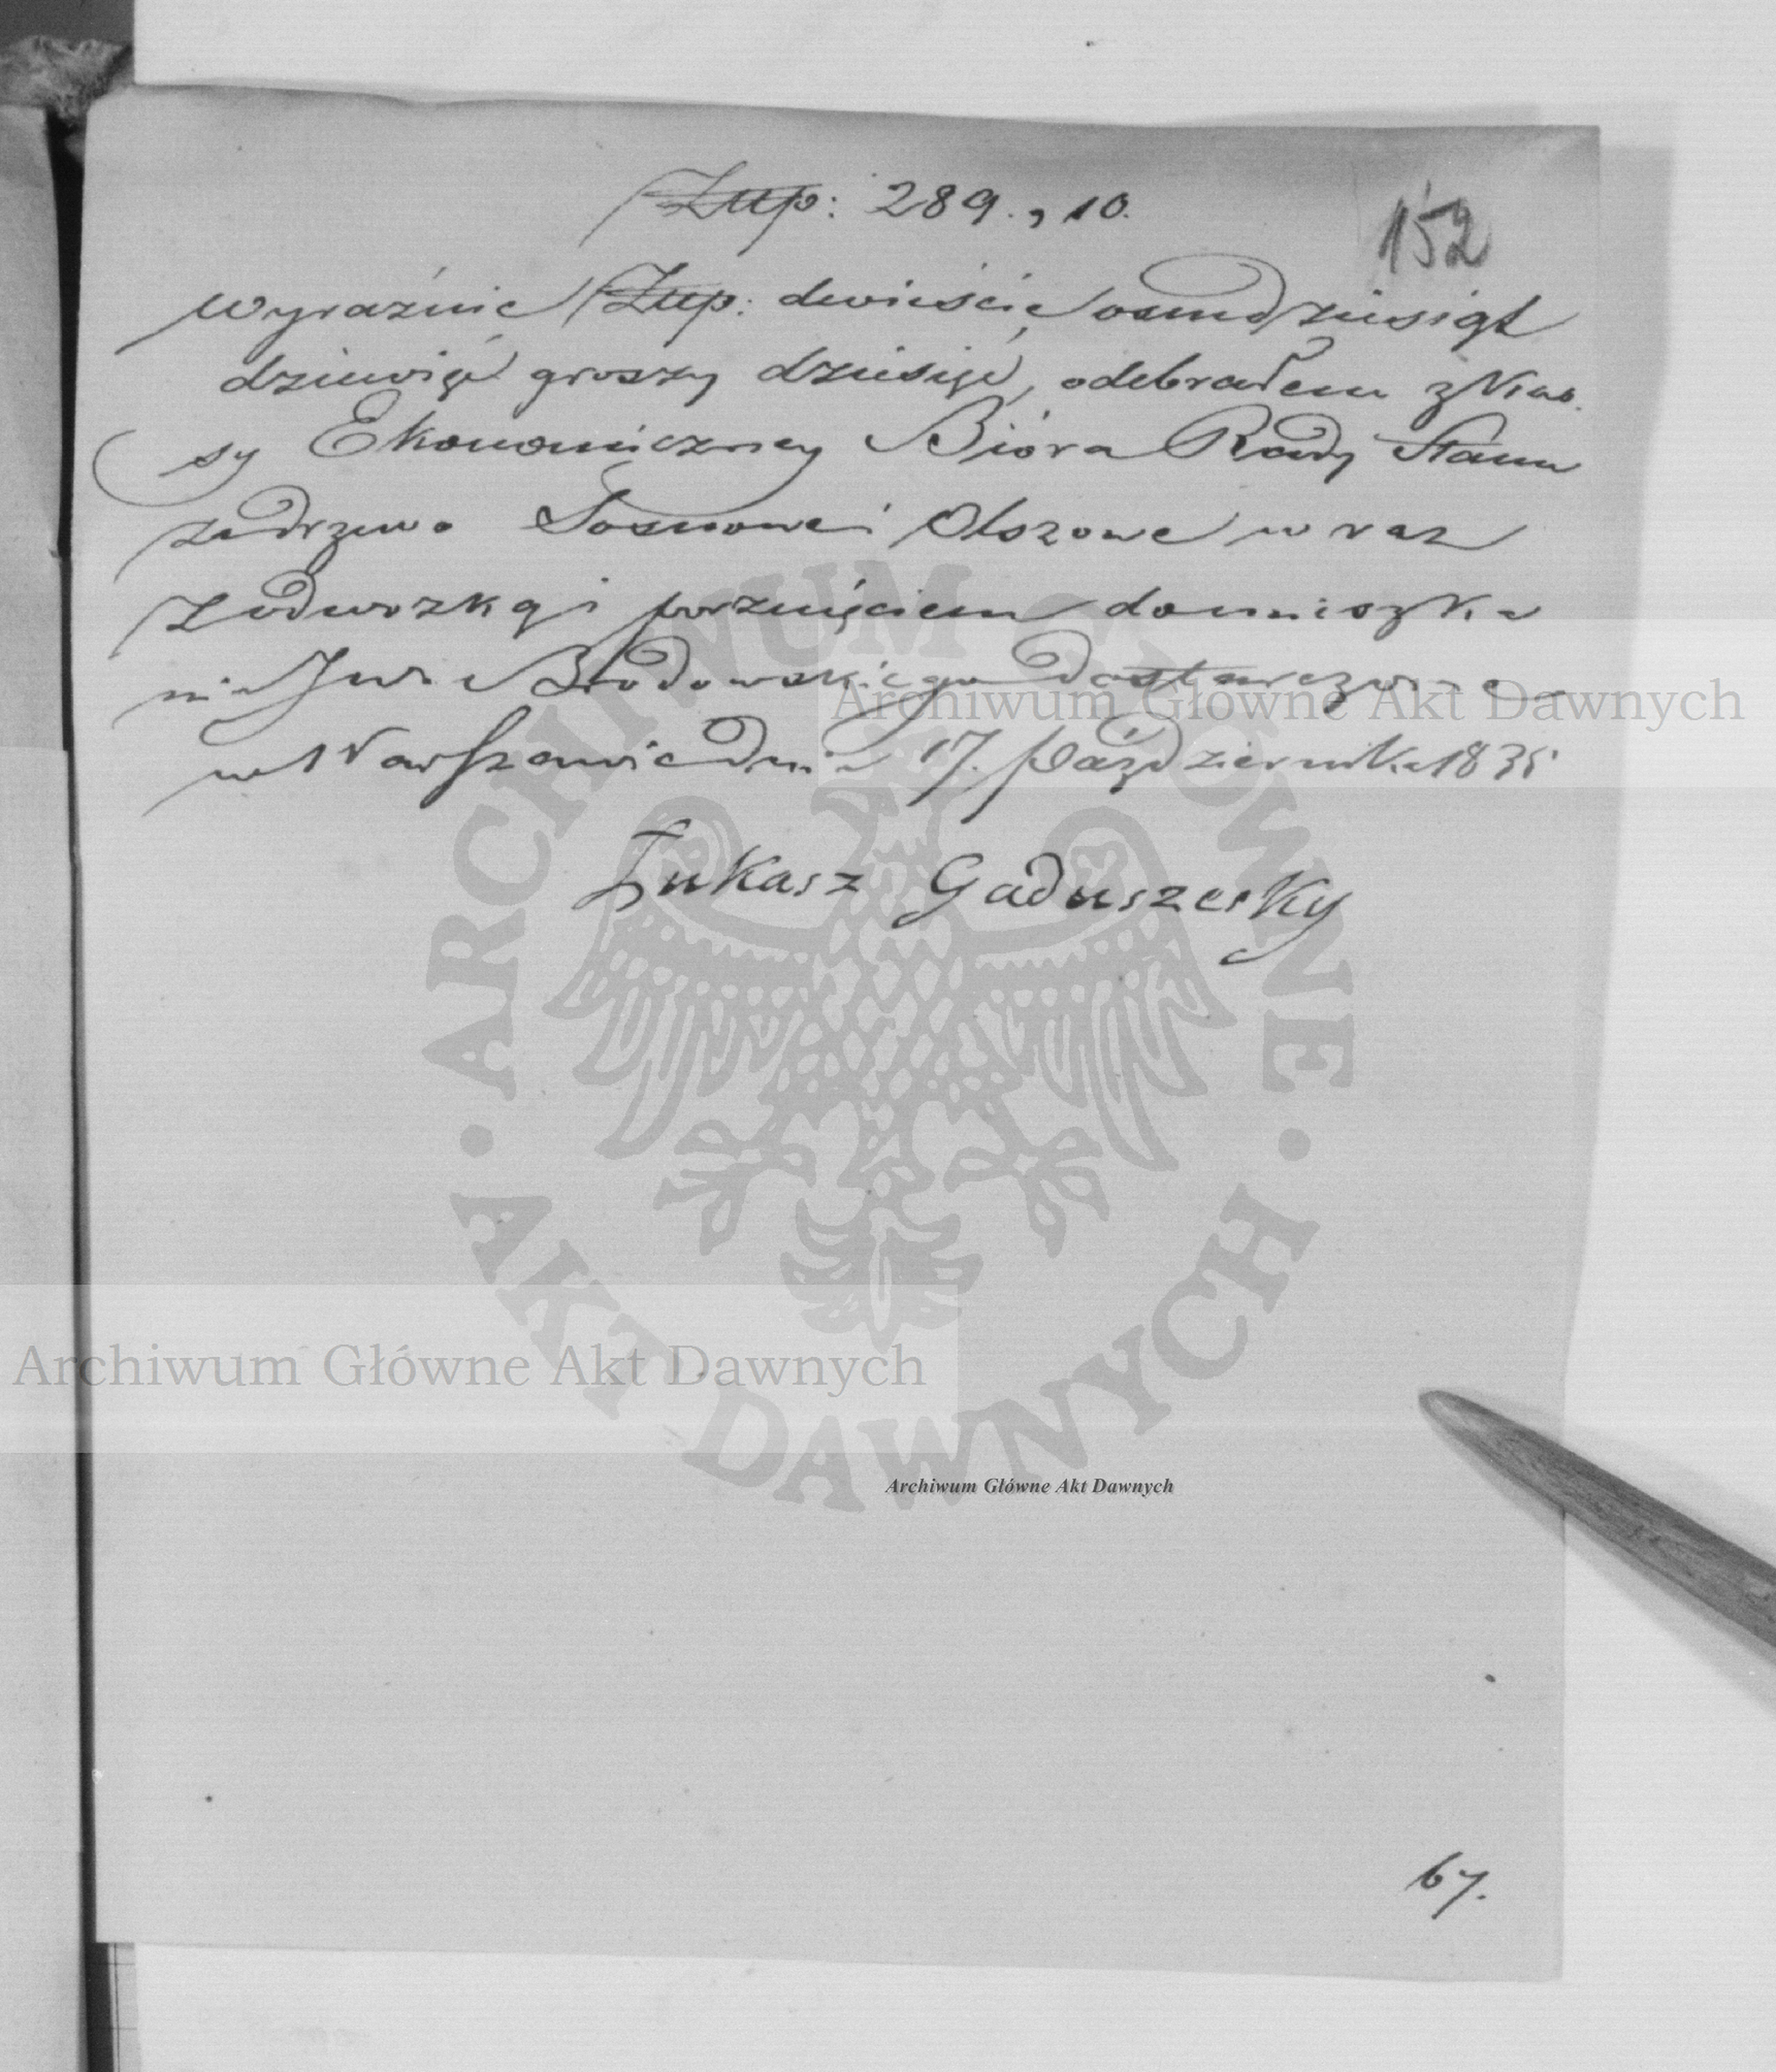 Złlp: 289., 10.
152
wyraźnie Złlp: dwieście osmdziesiąt
dziewięć groszy dziesięć, odebrałem z Kas-
sy Ekonomiczney Bióra Rady Stanu
za drzewo Sosnowe i Olszowe wraz
z odwozką i porznięciem do mieszka
nia JW. Brodowskiego dostarczone
w Warszawie dnia 17. Października 1835
Łukasz Gaduszesky
67.
ARCHIWUM GŁÓWNE
AKT DAWNYCH
Archiwum Główne Akt Dawnych
Archiwum Główne Akt Dawnych
Archiwum Główne Akt Dawnych